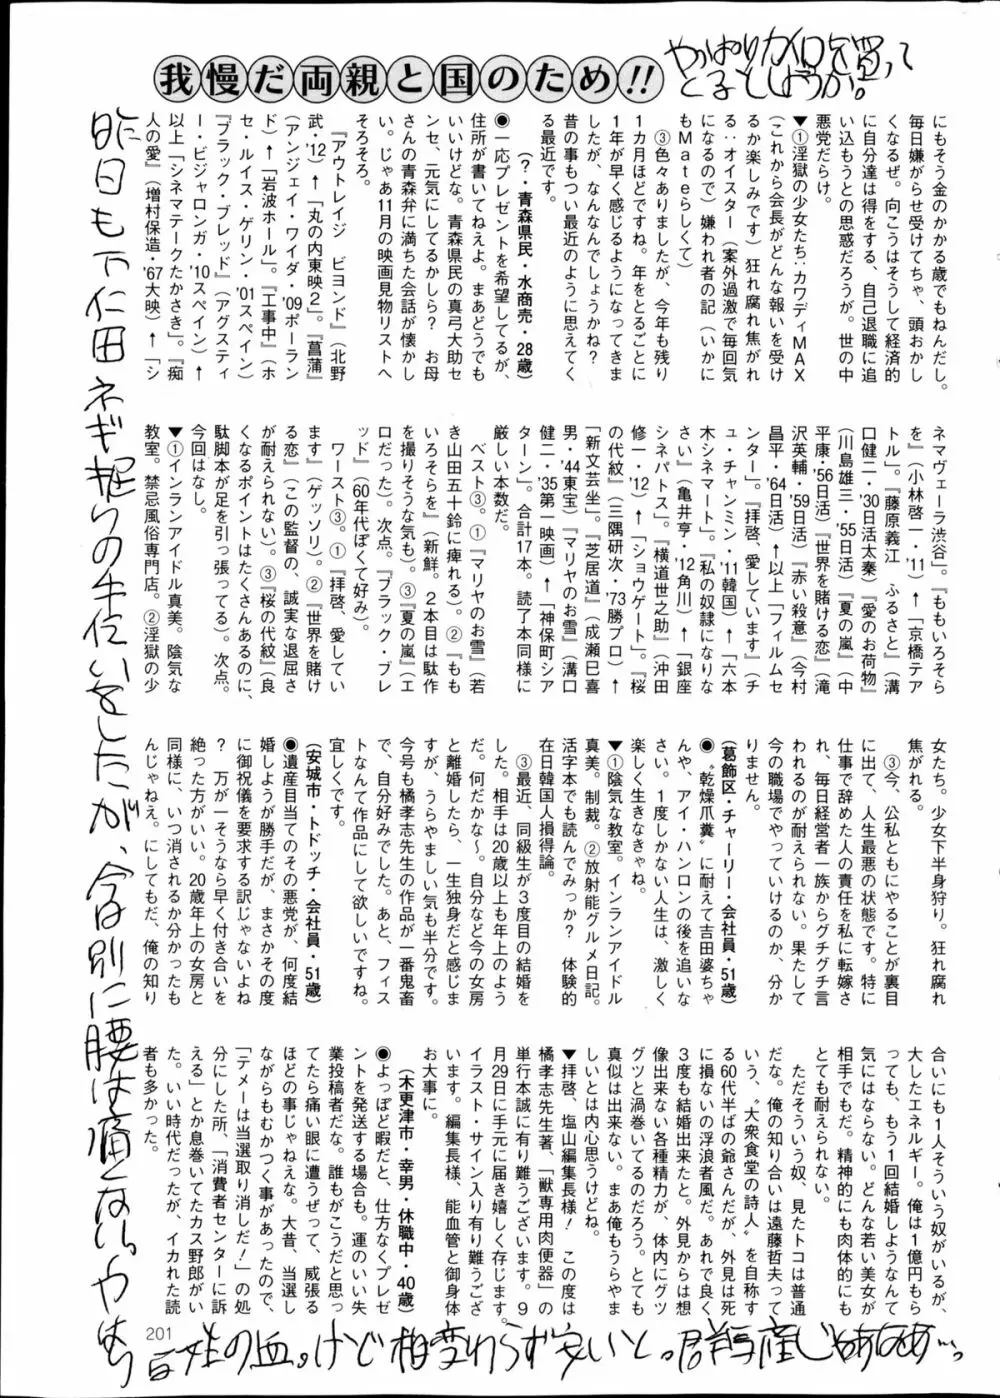 我慢だ両親と国のため!!
にもそう金のかかる歳でもねんだし。
毎日嫌がらせ受けてちゃ、頭おかし
くなるぜ。向こうはそうして経済的
に自分達は得をする、自己退職に追
い込もうとの思惑だろうが。世の中
悪党だらけ。
▼①淫獄の少女たち:カワディMAX
(これから会長がどんな報いを受け
るか楽しみです)狂れ腐れ焦がれ
る:オイスター(案外過激で毎回気
になるので)嫌われ者の記(いかに
もMateらしくて)
③色々ありましたが、今年も残り
1カ月ほどですね。年をとるごとに
1年が早く感じるようになってきま
したが、なんなんでしょうかね?
昔の事もつい最近のように思えてく
る最近です。
(?・青森県民・水商売・28歳)
◉一応プレゼントを希望してるが、
住所が書いてねえよ。まあどうでも
いいけどな。青森県民の真弓大助セ
ンセ、元気にしてるかしら? お母
さんの青森弁に満ちた会話が懐かし
い。じゃあ11月の映画見物リストへ
そろそろ。
『アウトレイジ ビヨンド』(北野
武・'12)↑「丸の内東映2」。『菖蒲』
(アンジェイ・ワイダ・'09ポーラン
ド)↑「岩波ホール」。『工事中』(ホ
セ・ルイス・ゲリン・'01スペイン)
『ブラック・ブレッド』(アグスティ
ー・ビジャロンガ・'10スペイン)↑
以上「シネマテークたかさき」。『痴
人の愛』(増村保造・'67大映)↑「シ
ネマヴェーラ渋谷」。『ももいろそら
を』(小林啓一・'11)↑「京橋テア
トル」。『藤原義江 ふるさと』(溝
口健二・'30日活太秦)『愛のお荷物』
(川島雄三・'55日活)『夏の嵐』(中
平康・'56日活)『世界を賭ける恋』(滝
沢英輔・'59日活)『赤い殺意』(今村
昌平・'64日活)↑以上「フィルムセ
ンター」。『拝啓、愛しています』(チ
ュ・チャンミン・'11韓国)↑「六本
木シネマート」。『私の奴隷になりな
さい』(亀井亨・'12角川)↑「銀座
シネパトス」。『横道世之助』(沖田
修一・'12)↑「ショウゲート」。『桜
の代紋』(三隅研次・'73勝プロ)↑
「新文芸坐」。『芝居道』(成瀬巳喜
男・'44東宝)『マリヤのお雪』(溝口
健二・'35第一映画)↑「神保町シア
ター」。合計17本。読了本同様に
厳しい本数だ。
ベスト③。①『マリヤのお雪』(若
き山田五十鈴に痺れる)。②『もも
いろそらを』(新鮮。2本目は駄作
を撮りそうな気も)。③『夏の嵐』(エ
ロだった)。次点。『ブラック・ブレ
ッド』(60年代ぽくて好み)。
ワースト③。①『拝啓、愛してい
ます』(ゲッソリ)。②『世界を賭け
る恋』(この監督の、誠実な退屈さ
が耐えられない)。③『桜の代紋』(良
くなるポイントはたくさんあるのに、
駄脚本が足を引っ張ってる)。次点。
今回はなし。
▼①インランアイドル真美。陰気な
教室。禁忌風俗専門店。②淫獄の少
女たち。少女下半身狩り。狂れ腐れ
焦がれる。
③今、公私ともにやることが裏目
に出て、人生最悪の状態です。特に
仕事で辞めた人の責任を私に転嫁さ
れ、毎日経営者一族からグチグチ言
われるのが耐えられない。果たして
今の職場でやっていけるのか、分か
りません。
(葛飾区・チャーリー・会社員・51歳)
◉〝乾燥爪糞〟に耐えて吉田婆ちゃ
んや、アイ・ハンロンの後を追いな
さい。1度しかない人生は、激しく
楽しく生きなきゃね。
▼①陰気な教室。インランアイドル
真美。制裁。②放射能グルメ日記。
活字本でも読んでみっか? 体験的
在日韓国人損得論。
③最近、同級生が3度目の結婚を
した。相手は20歳以上も年上のよう
だ。何だかな〜。自分など今の女房
と離婚したら、一生独身だと感じま
すが、うらやましい気も半分です。
今号も橘孝志先生の作品が一番鬼畜
で、自分好みでした。あと、フィス
トなんて作品にして欲しいですね。
宜しくです。
(安城市・トドッチ・会社員・51歳)
◉遺産目当てのその悪党が、何度結
婚しようが勝手だが、まさかその度
に御祝儀を要求する訳じゃないよね
? 万が一そうなら早く付き合いを
絶った方がいい。20歳年上の女房と
同様に、いつ消されるか分かったも
んじゃねえ。にしてもだ、俺の知り
合いにも1人そういう奴がいるが、
大したエネルギー。俺は1億円もら
っても、もう1回結婚しようなんて
気にはならない。どんな若い美女が
相手でもだ。精神的にも肉体的にも
とても耐えられない。
ただそういう奴、見たトコは普通
だな。俺の知り合いは遠藤哲夫って
いう、〝大衆食堂の詩人〟を自称す
る60代半ばの爺さんだが、外見は死
に損ないの浮浪者風だ。あれで良く
3度も結婚出来たと。外見からは想
像出来ない各種精力が、体内にグツ
グツと渦巻いてるのだろう。とても
真似は出来ない。まあ俺もうらやま
しいとは内心思うけどね。
▼拝啓、塩山編集長様! この度は
橘孝志先生著、「獣専用肉便器」の
単行本誠に有り難うございます。9
月29日に手元に届き嬉しく存じます。
イラスト・サイン入り有り難うござ
います。編集長様、能血管と御身体
お大事に。
(木更津市・幸男・休職中・40歳)
◉よっぽど暇だと、仕方なくプレゼ
ントを発送する場合も。運のいい失
業投稿者だな。誰もがこうだと思っ
てたら痛い眼に遭うぜって、威張る
ほどの事じゃねえな。大昔、当選し
ながらもむかつく事があったので、
「テメーは当選取り消しだ!」の処
分にした所、「消費者センターに訴
える」とか息巻いてたカス野郎がい
た。いい時代だったが、イカれた読
者も多かった。
やっぱりカイロを買って
昨日も下仁田ネギ掘りの手伝いをしたが、今は別に腰は痛くない。やはり
百姓の血。けど相変わらず安いと。群馬産じゃあなあ…。
201